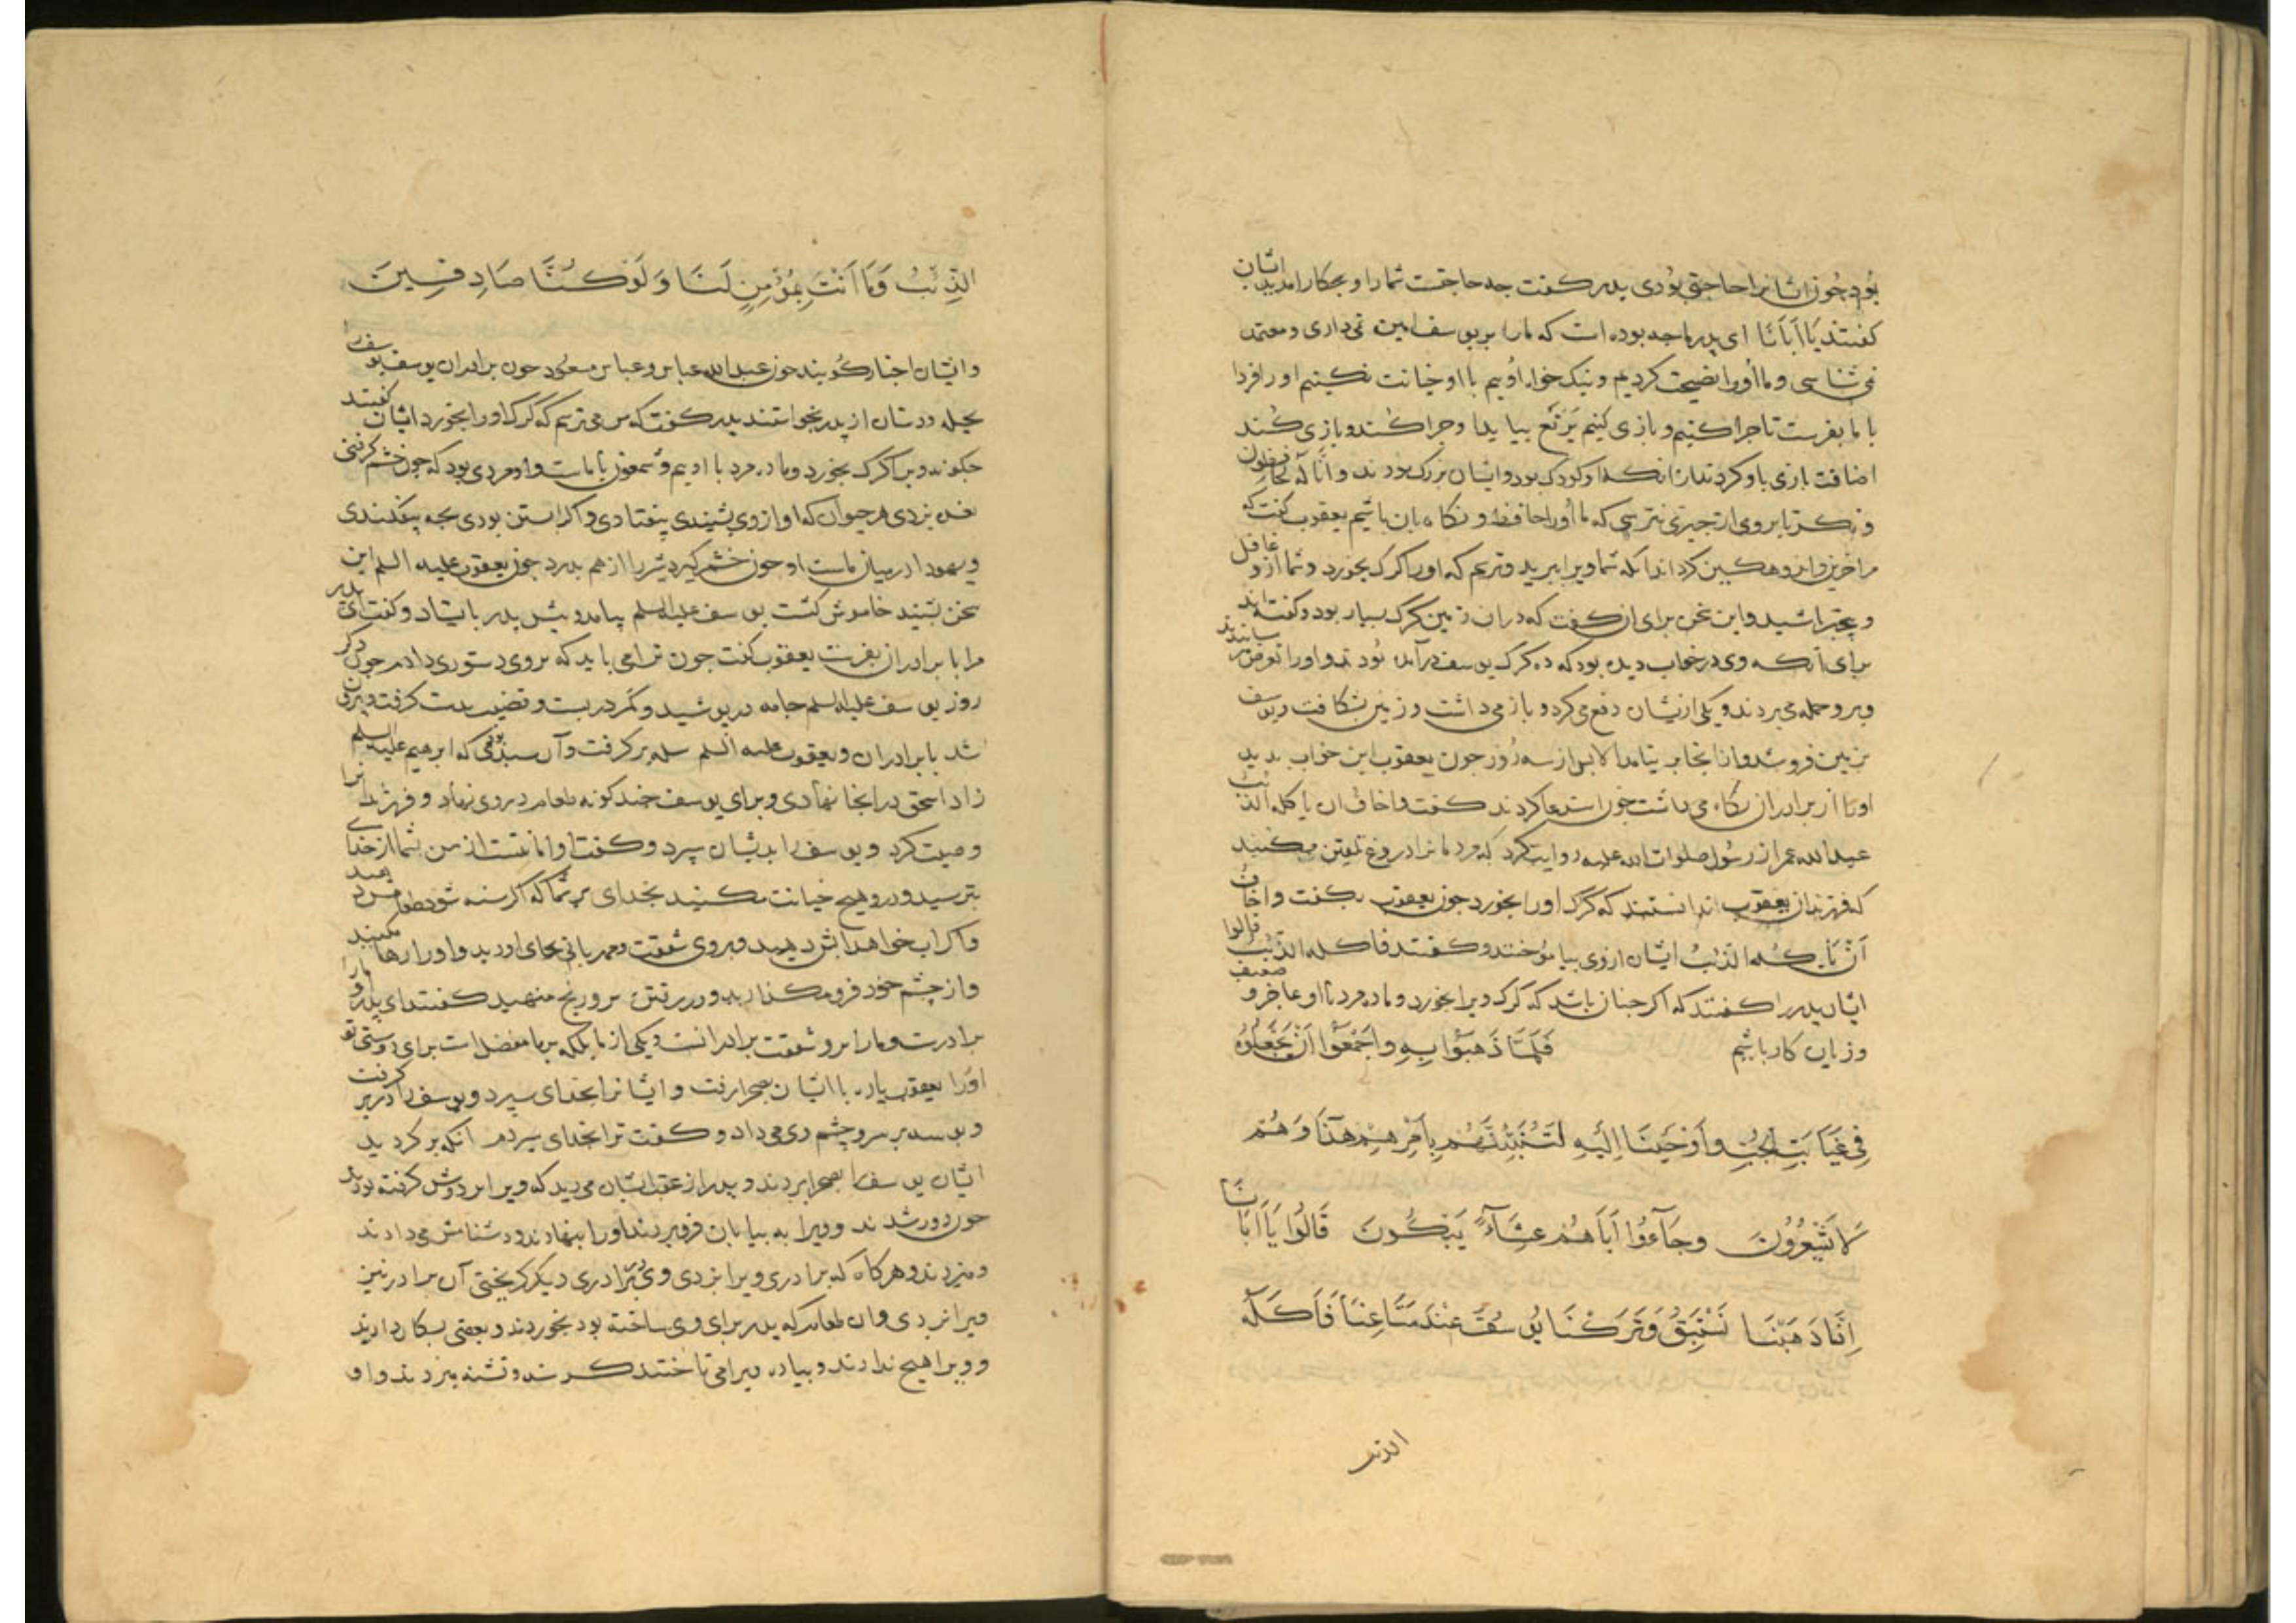 بود چون ایشانرا حاجتی بودی پدر کفت چه حاجتست شمارا و بچکار امدید ایشان
کفتند یَا اَبَانَا ای پدر ما چه بوده است که مارا بر یوسف امین نمی داری و معتمد
نمی شناسی و ما اورا نصیحت کردیم و نیک خواه اوییم با او خیانت نکنیم او را فردا
با ما بفرست تا چرا کنیم و بازی کنیم یَرْتَع بیابد و چرا کند و بازی کند
اضافت بازی باو کردند از انکه او کودک بود و ایشان بزرک بودند و انّا له لحافظون
و نکر تا بروی از چیزی نترسی که ما اورا حافظ و نکاه بان باشیم یعقوب کفت که
مرا حزین و اندوهکین کرداند انکه شما ویرا ببرید و ترسم که اورا کرک بخورد و شما ازو غافل
و بیخبر باشید و این سخن برای ان کفت که دران زمین کرک بسیار بود و کفته اند
برای آنکه وی در خواب دیده بود که ده کرک بیوسف در آمده بودند و اورا
و برو حمله می بردند و یکی ازیشان دفع می کرد و باز می داشت و زمین بشکافت و یوسف
بزمین فرو شد و ازانجا بر نیامد الا پس از سه روز چون یعقوب این خواب بدید
اورا از برادران نکاه می داشت چون استدعا کردند کفت و اخاف ان یاکله الذئب
عبدالله عمر از رسول صلوات الله علیه روایت کرد که مردمانرا دروغ تلقین مکنید
که فرزندان یعقوب ندانستند که کرک اورا بخورد چون یعقوب بکفت و اخاف
اَنْ یَاکله الذئبُ ایشان ازوی بیاموختند و کفتند فاکله الذئبُ قالوا
ایشان پدررا کفتند که اکر چنان باشد که کرک ویرا بخورد و ما ده مرد با او عاجز و ضعیف
و زیان کار باشیم فَلَمَّا ذَهَبُوا بِهِ واَجْمَعُوا اَنْ یَجْعَلُوهُ
فِی غَیَابَتِ الجُبِّ واَوْحَیْنَا اِلَیْهِ لَتُنَبِّئَنَّهُمْ بِاَمْرِهِمْ هَذَا وَهُمْ
لَا یَشْعُرُونَ وجَآءُوا اَبَاهُمْ عِشَآءً یَبْکُونَ قَالُوا یَا اَبَانَا
اِنَّا ذَهَبْنَا نَسْتَبِقُ وَتَرَکْنَا یُوسُفَ عِنْدَ مَتَاعِنَا فَاَکَلَهُ
الذئب
الذِّئْبُ وَمَا اَنْتَ بِمُؤْمِنٍ لَنَا وَلَوْ کُنَّا صَادِقِینَ
و ایشان اخبار کویند چون عبدالله عباس و عباس مسعود چون برادران یوسف یوسف را
بحیله و دستان از پدر بخواستند پدر کفت که من می ترسم که کرک اورا بخورد ایشان کفتند
چکونه ویرا کرک بخورد و ما ده مرد با اوییم و شمعون با ماست و او مردی بود که چون خشم کرفتی
نعره بزدی هر حیوان که اواز وی بشنیدی بیفتادی و اکر ابستن بودی بچه بیفکندی
و یهودا درمیان ماست او چون خشم کیرد شیررا از هم بدرد چون یعقوب علیه السلم این
سخن بشنید خاموش کشت یوسف علیه السلم بیامد و پیش پدر بایستاد و کفت ای پدر
مرا با برادران بفرست یعقوب کفت چون ترا می باید که بروی دستوری دادم چون دکر
روز یوسف علیه السلم جامه در پوشید و کمر در بست و قضیب بدست کرفت و بیرون
شد با برادران و یعقوب علیه السلم سله بر کرفت و آن سبدی بود که ابرهیم علیه السلم
زاد اسحق درانجا نهادی و برای یوسف چند کونه طعام در وی نهاد و فرزندانرا
وصیت کرد و یوسف را بدیشان سپرد و کفت او امانتست از من بشما از خدای
بترسید و درو هیچ خیانت مکنید بخدای بر شما که اکر کرسنه شود طعامش دهید
و اکر اب خواهد ابش دهید و بروی شفقت و مهربانی بجای اورید و اورا رها مکنید
و از چشم خود فرو مکذارید و در رفتن برو رنج منهید کفتند ای پدر او مارا
برادرست و مارا برو شفقت برادرانست و یکی از ما بلکه بر ما مفضل است برای دوستی تو
اورا یعقوب باره با ایشان بصحرا رفت و ایشانرا بخدای سپرد و یوسف را در بر کرفت
و بوسه بر سر و چشم وی می داد و کفت ترا بخدای سپردم انکه بر کردید
ایشان یوسف را بصحرا بردند و پدر از عقب ایشان می دید که ویرا بر دوش کرفته بودند
چون دور شدند و ویرا به بیابان فرو بردند اورا بنهادند و دشنامش می دادند
و میزدند و هر کاه که برادری ویرا بزدی وی با برادری دیکر کریختی آن برادر نیز
ویرا بزدی وان طعام که پدر برای وی ساخته بود بخوردند و بعضی بسکان دادند
و ویرا هیچ ندادند و پیاده ویرا می تاختند کرسنه و تشنه میزدند و او